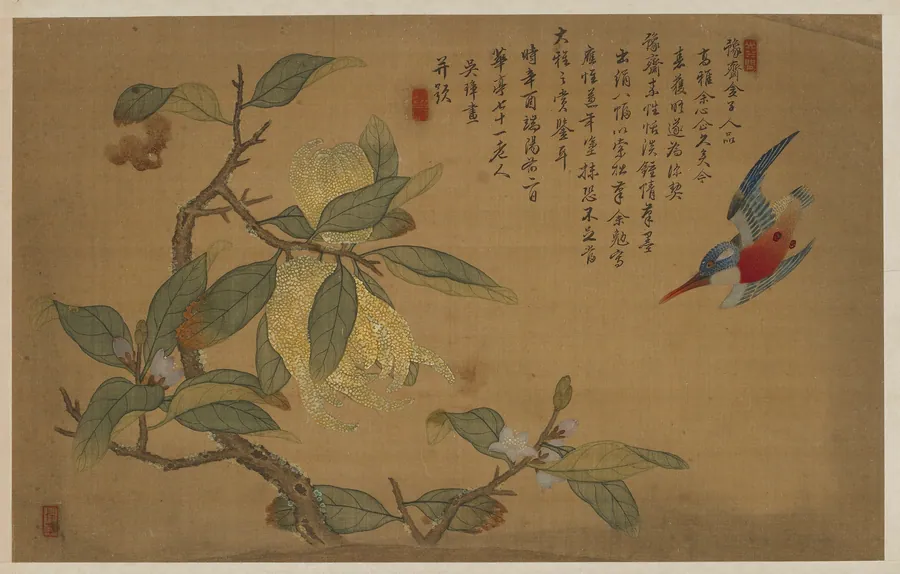 豫齋金子人品
高雅余心企久矣今
春獲時遂為深契
豫齋素性恬淡鍾情筆墨
出絹八幅以索拙筆余勉寫
應惟年塗抹恐不足當
大雅之賞鑒耳
時辛酉端陽前日
華亭七十一老人
吳璋畫
并題